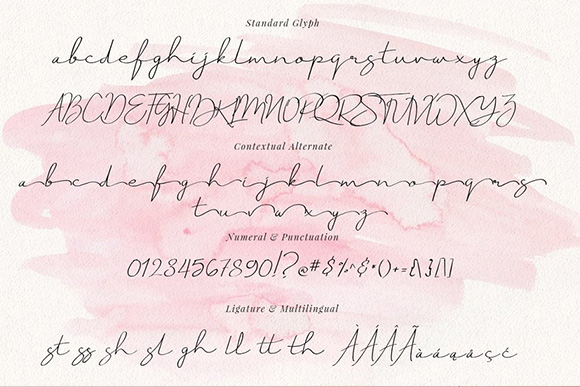 Standard Glyph
abcdefghijklmnopqrstuvwxyz
ABCDEFGHIJKLMNOPQRSTUVWXYZ
Contextual Alternate
a b c d e f g h i j k l m n o p q r s
t u v w x y z
Numeral & Punctuation
01234567890!?@#$%^&*()+={\}[\]
Ligature & Multilingual
st ss sh sl gh ll tt th ÀÁÂÃàáąâçć